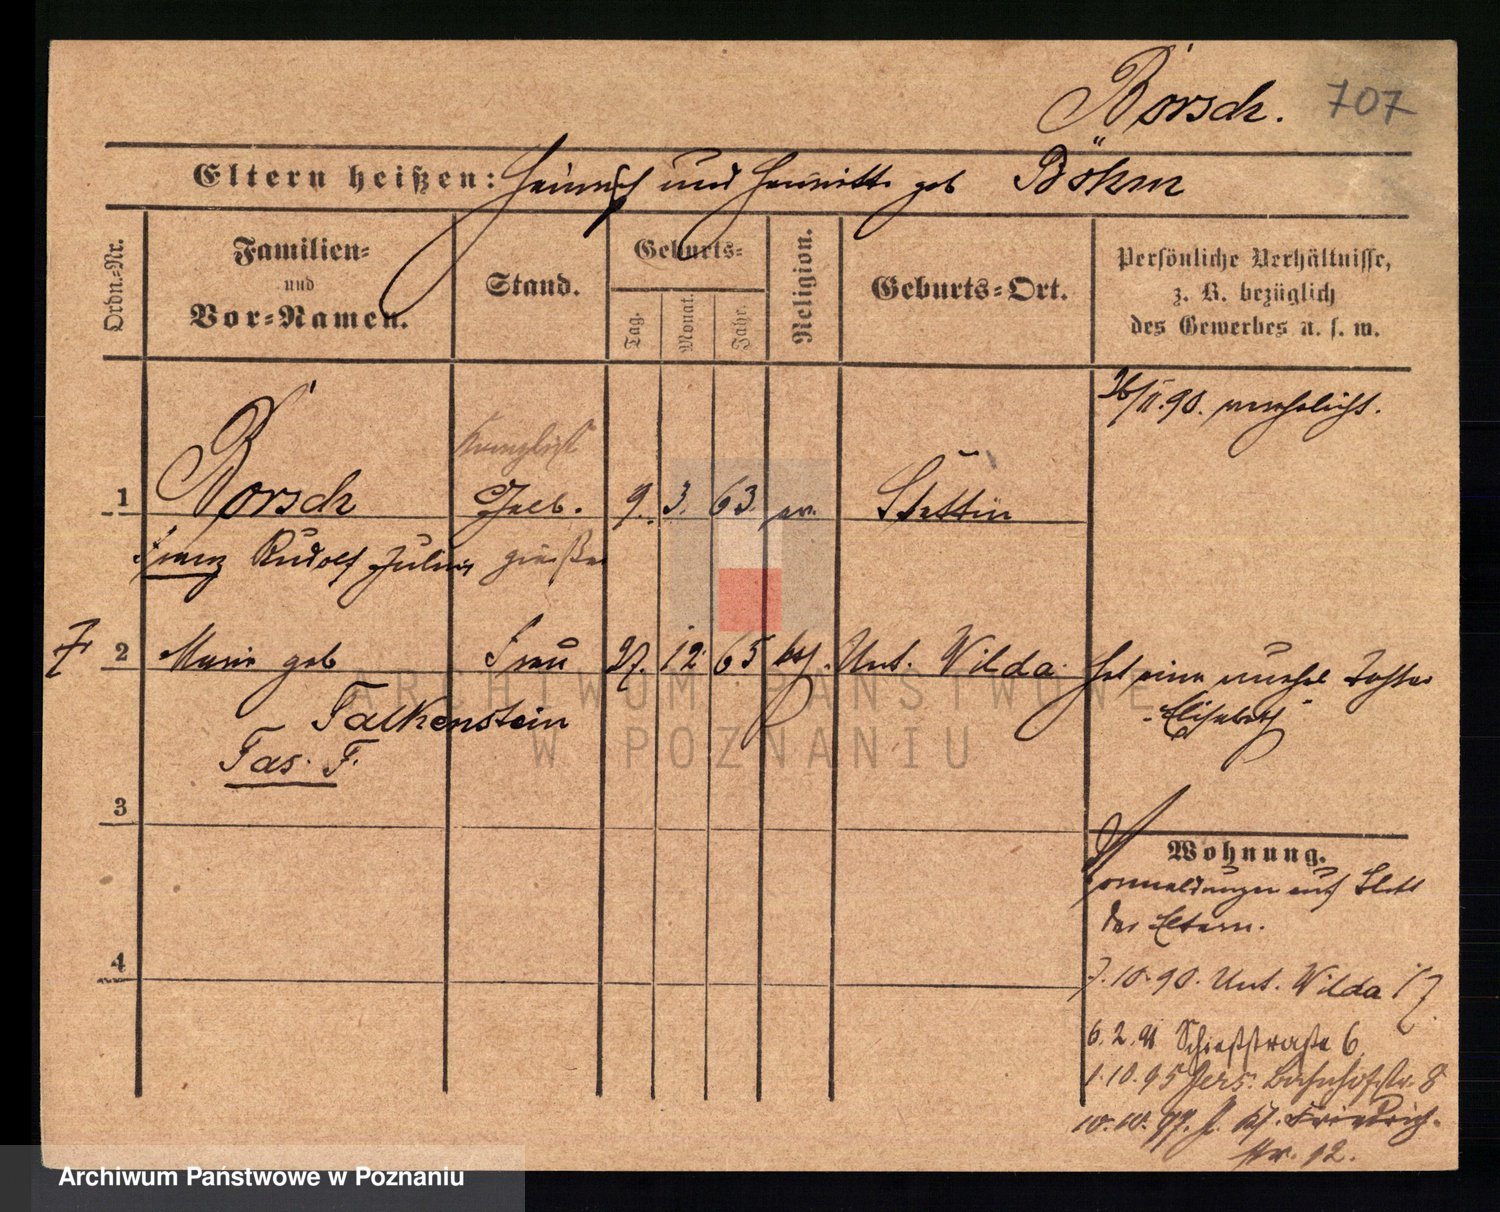 Börsch. 707
Eltern heißen: Heinrich und Henriette geb Böhm
Ordn.=Nr.
Familien=
und
Vor=Namen.
Stand.
Geburts=
Tag.
Monat.
Jahr.
Religion.
Geburts=Ort.
Persönliche Verhältnisse,
z. B. bezüglich
des Gewerbes u. s. w.
26/II.90. verehelicht.
Kanzlist
1 Börsch Gelb. 9. 3. 63. ev. Stettin
Franz Rudolf Julius gießer
2 Marie geb Frau 27. 12. 65 kth. Unt. Wilda. Hat eine unehel Tochter
Falkenstein
"Elisabeth"
Tas. F.
3
Wohnung.
Vormeldungen auf Blatt
der Eltern.
4
7.10.90. Unt. Wilda 17
6.2.91 Schießstraße 6
1.10.95 Jers. Bahnhofstr. 8
10.10.97. J. Friedrich-
str. 12.
ARCHIWUM PAŃSTWOWE
W POZNANIU
Archiwum Państwowe w Poznaniu